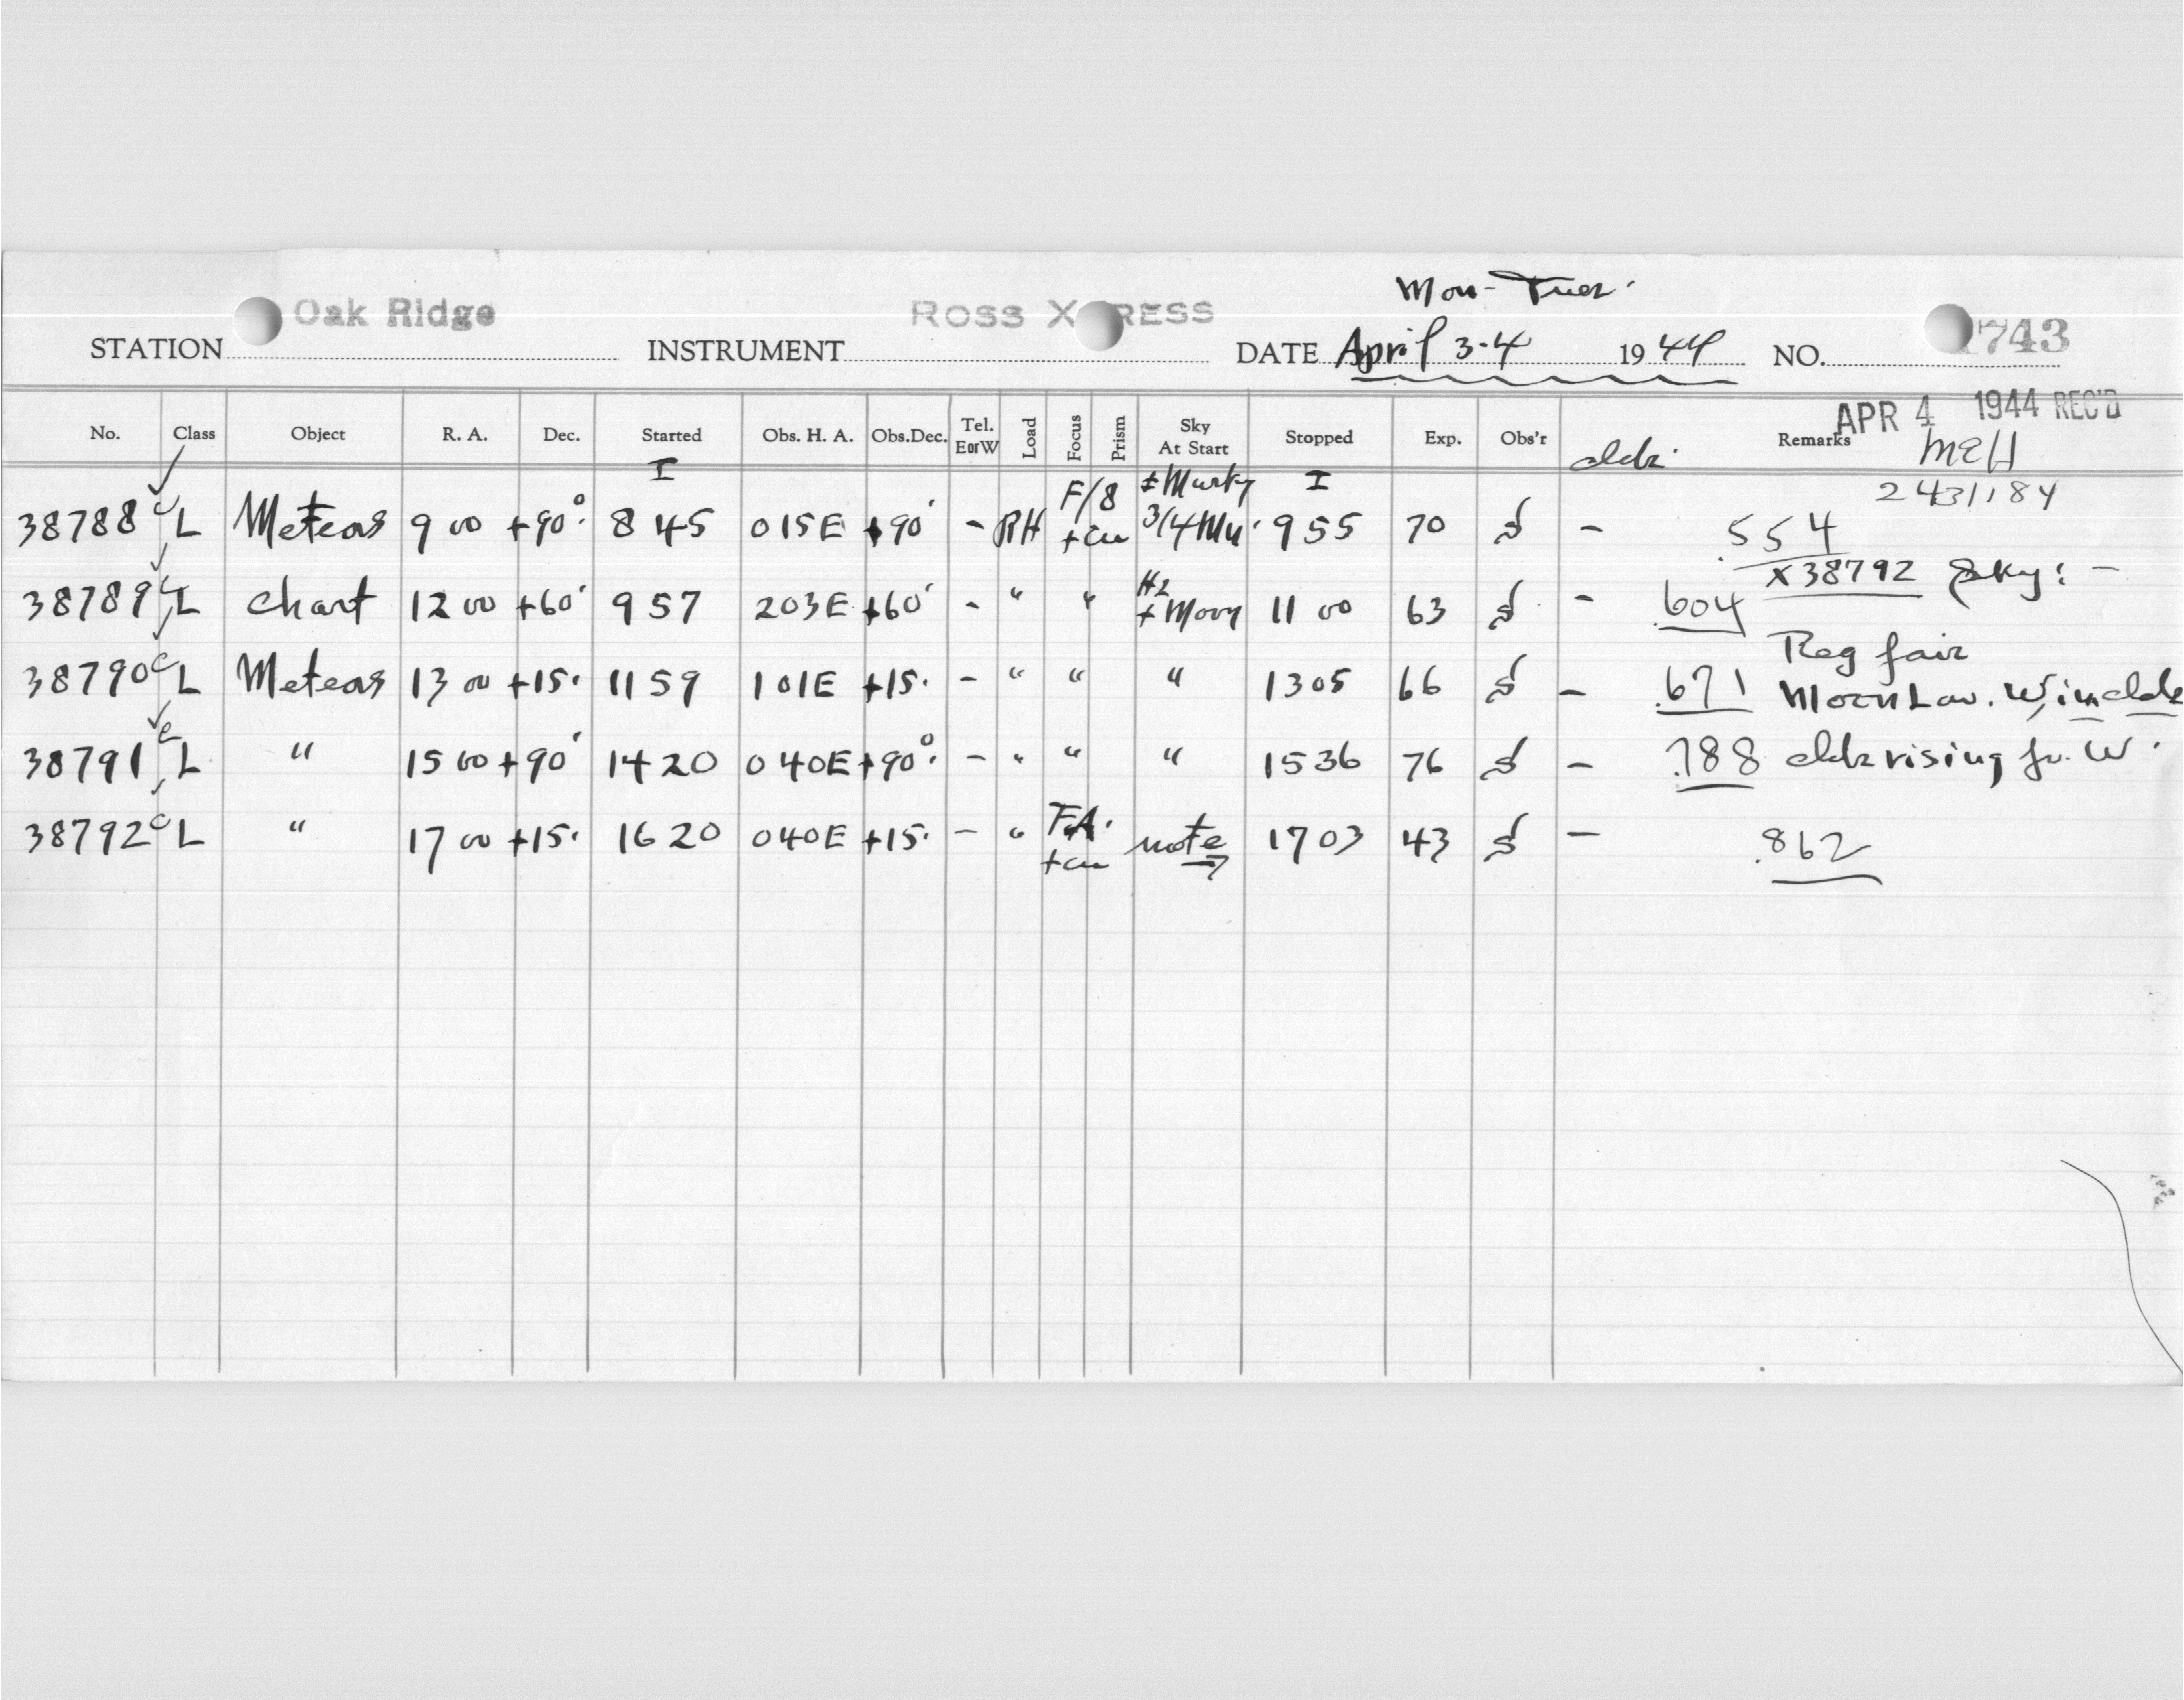 Mon-Tues.
Oak Ridge ROSS X RESS
STATION INSTRUMENT DATE April 3-4 1944 NO. 1743
APR 4 1944 REC'D
No. Class Object R. A. Dec. Started Obs. H. A. Obs.Dec. Tel. EorW Load Focus Prism Sky At Start Stopped Exp. Obs'r Remarks
MEH
I ± Murky I 2431184
38788 c L Meteors 9 00 +90° 8 45 0 15 E +90 - RH F/8 + cu 3/4 Mn. 9 55 70 - .554
x 38792 Sky: -
38789 c L Chart 12 00 +60 9 57 2 03 E +60 - " " Hz + Moon 11 00 63 - .604
Reg fair
38790 c L Meteors 13 00 +15. 11 59 1 01 E +15. - " " " 13 05 66 - .671 Moon Low. W, in clds
38791 c L " 15 00 +90 14 20 0 40 E +90° - " " " 15 36 76 - .788 clds rising fr. W.
38792 c L " 17 00 +15. 16 20 0 40 E +15. - " F.A. + cu note → 17 03 43 - .862